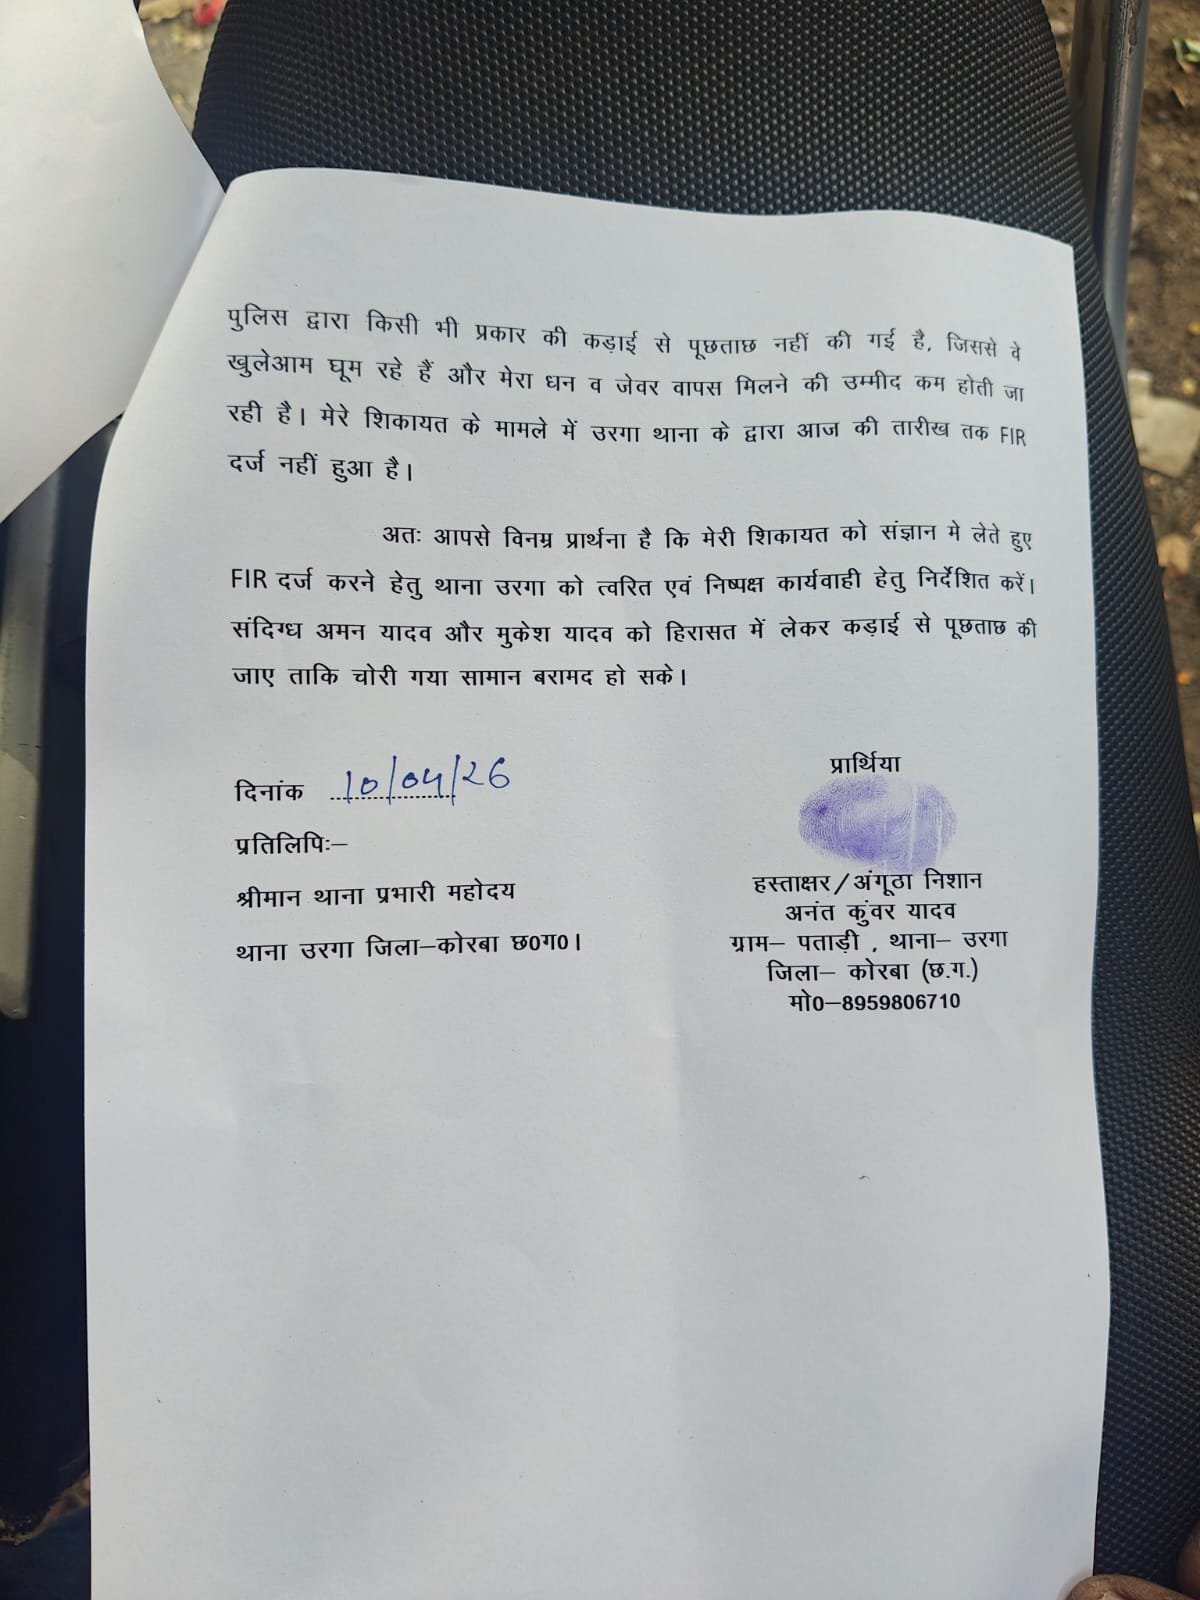 पुलिस द्वारा किसी भी प्रकार की कड़ाई से पूछताछ नहीं की गई है, जिससे वे
खुलेआम घूम रहे हैं और मेरा धन व जेवर वापस मिलने की उम्मीद कम होती जा
रही है। मेरे शिकायत के मामले में उरगा थाना के द्वारा आज की तारीख तक FIR
दर्ज नहीं हुआ है।
अतः आपसे विनम्र प्रार्थना है कि मेरी शिकायत को संज्ञान मे लेते हुए
FIR दर्ज करने हेतु थाना उरगा को त्वरित एवं निष्पक्ष कार्यवाही हेतु निर्देशित करें।
संदिग्ध अमन यादव और मुकेश यादव को हिरासत में लेकर कड़ाई से पूछताछ की
जाए ताकि चोरी गया सामान बरामद हो सके।
दिनांक 10/04/26
प्रतिलिपिः–
श्रीमान थाना प्रभारी महोदय
थाना उरगा जिला–कोरबा छ0ग0।
प्रार्थिया
हस्ताक्षर/अंगूठा निशान
अनंत कुंवर यादव
ग्राम– पताड़ी , थाना– उरगा
जिला– कोरबा (छ.ग.)
मो0–8959806710